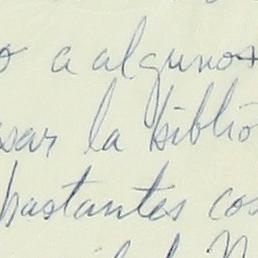 o a algunos
sar la biblio
bastantes cos